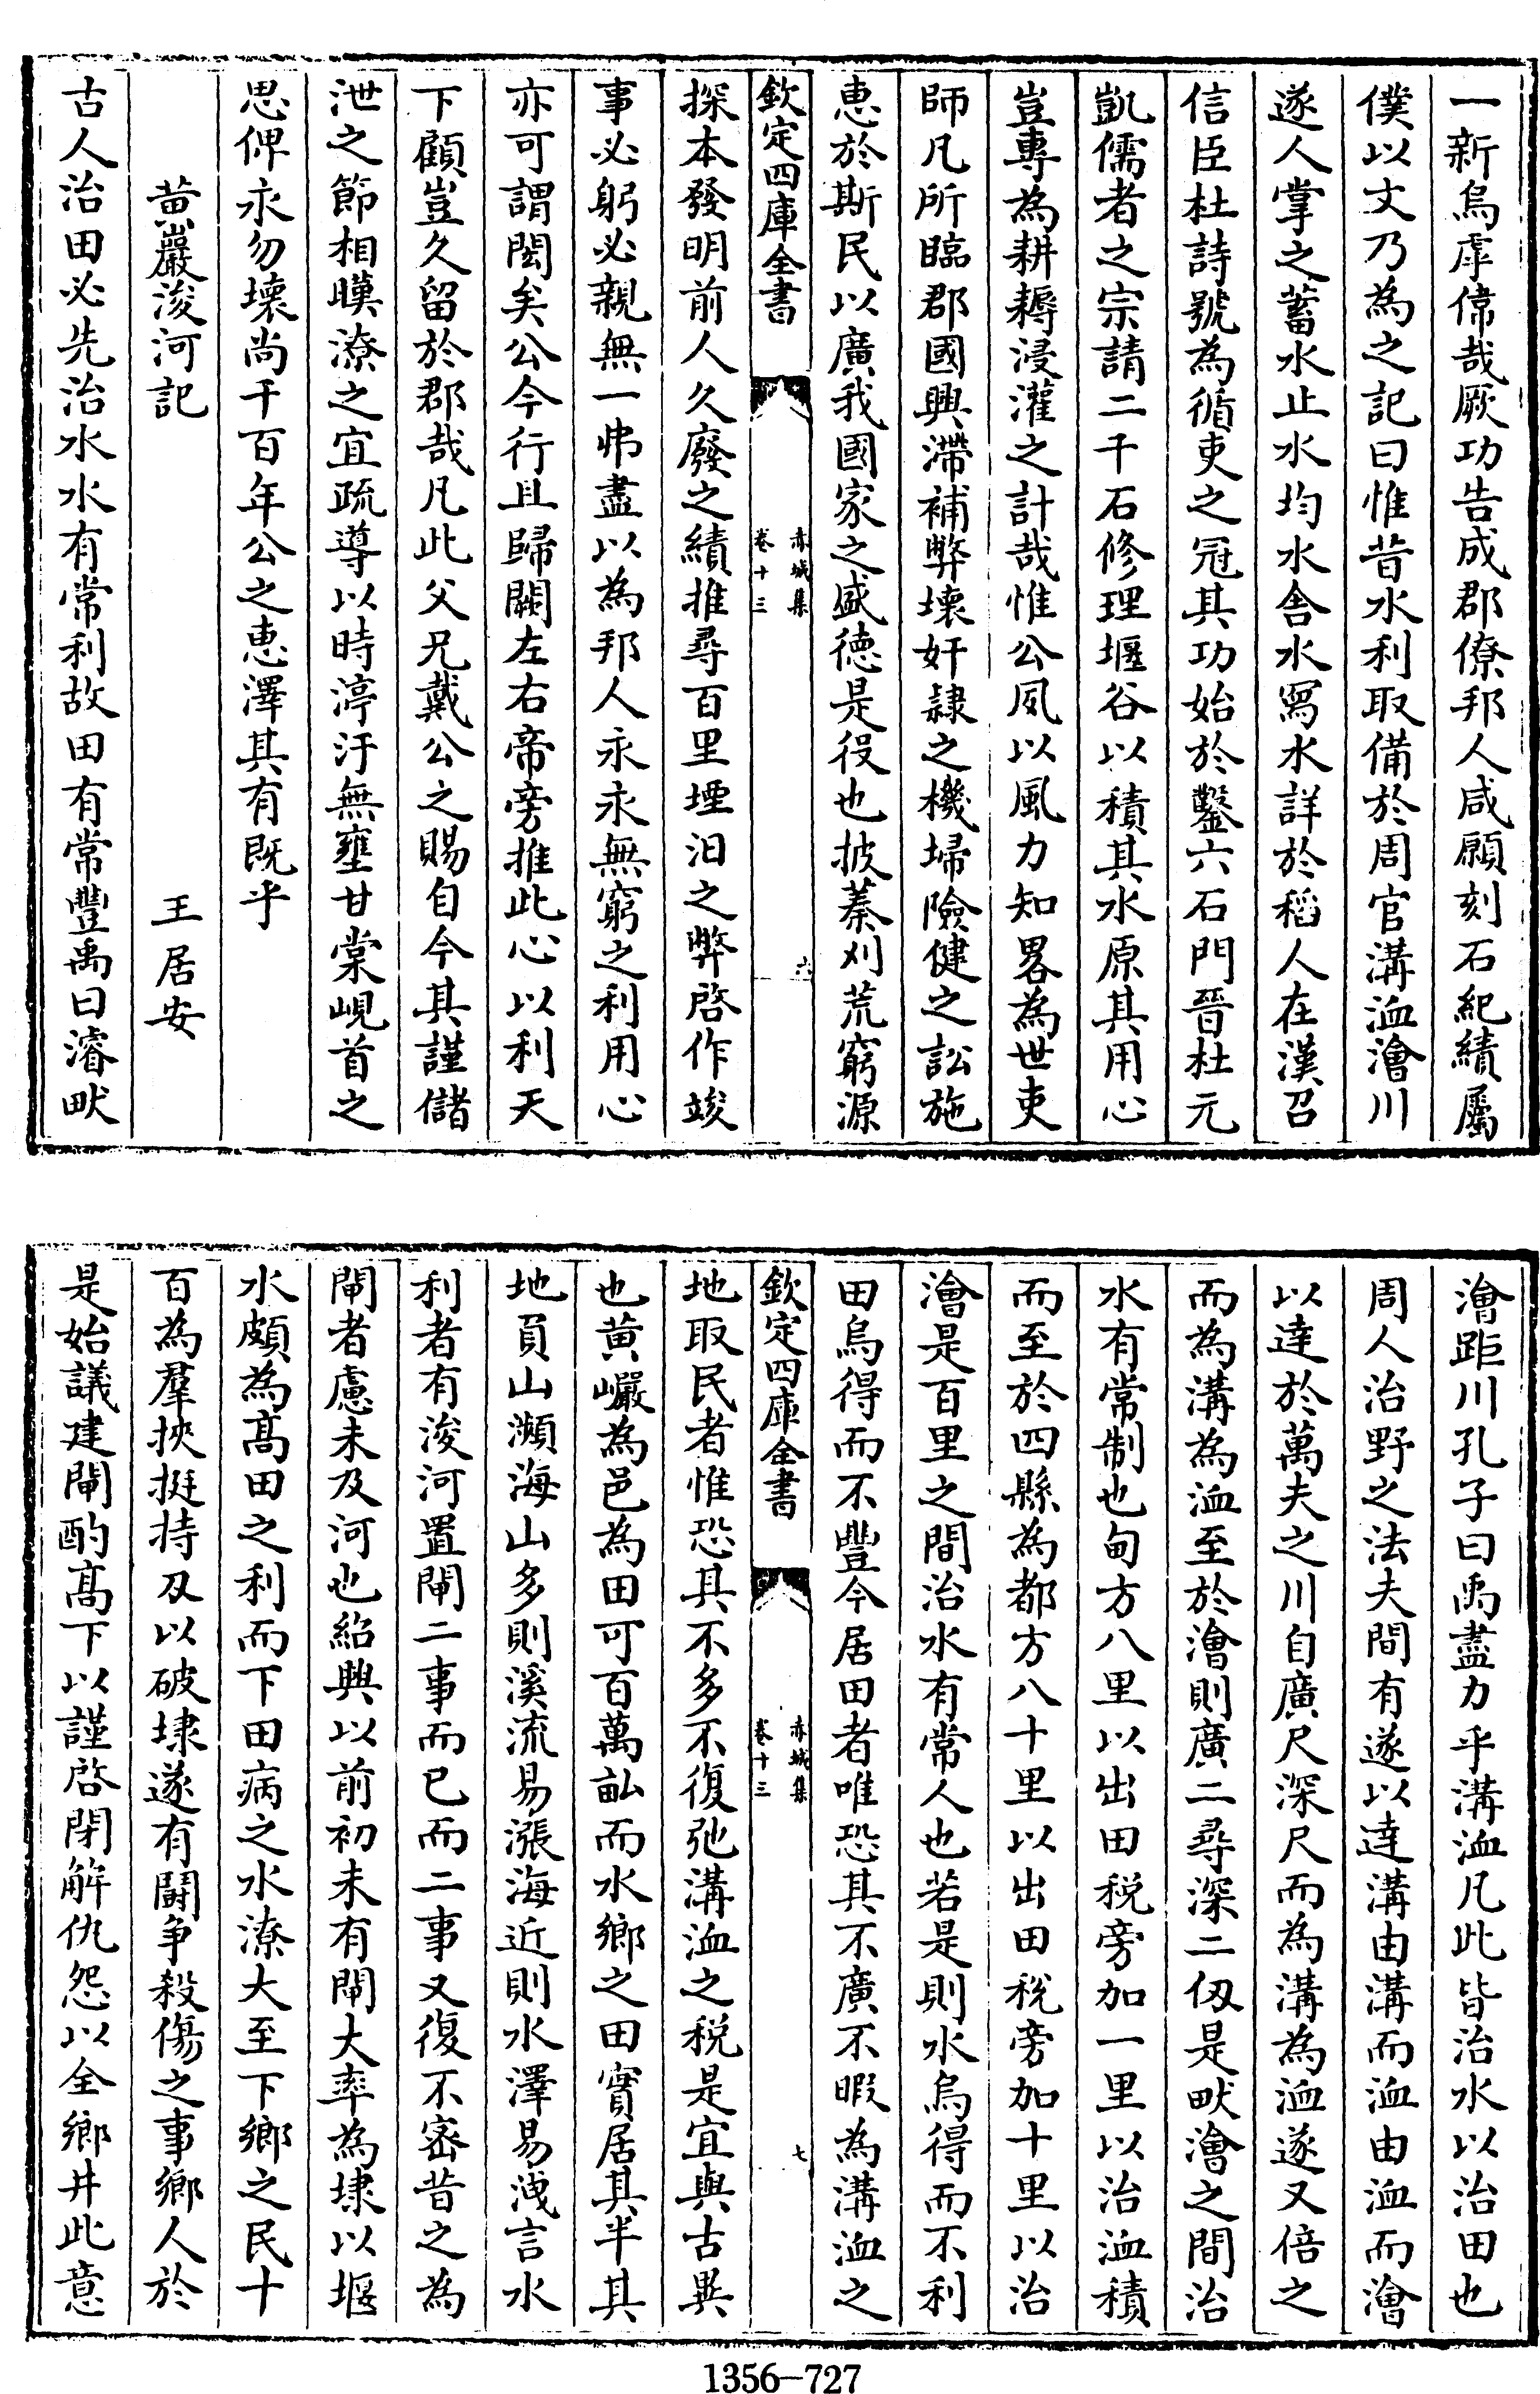 一新烏虖偉哉厥功告成郡僚邦人咸願刻石紀績屬
僕以文乃為之記曰惟昔水利取備於周官溝洫澮川
遂人掌之蓄水止水均水舍水寫水詳於稻人在漢召
信臣杜詩號為循吏之冠其功始於鑿六石門晉杜元
凱儒者之宗請二千石修理堰谷以積其水原其用心
豈專為耕耨浸灌之計哉惟公夙以風力知畧為世吏
師凡所臨郡國興滯補弊壞奸隷之機埽險健之訟施
惠於斯民以廣我國家之盛德是役也披蓁刈荒窮源
欽定四庫全書
赤城集
卷十三
六
探本發明前人久廢之績推尋百里堙汩之弊啓作竣
事必躬必親無一弗盡以為邦人永永無窮之利用心
亦可謂閎矣公今行且歸闕左右帝旁推此心以利天
下顧豈久留於郡哉凡此父兄戴公之賜自今其謹儲
泄之節相暵潦之宜疏導以時渟汙無壅甘棠峴首之
思俾永勿壞尚千百年公之惠澤其有既乎
黄巖浚河記
王居安
古人治田必先治水水有常利故田有常豐禹曰濬畎
澮距川孔子曰禹盡力乎溝洫凡此皆治水以治田也
周人治野之法夫間有遂以達溝由溝而洫由洫而澮
以達於萬夫之川自廣尺深尺而為溝為洫遂又倍之
而為溝為洫至於澮則廣二尋深二仭是畎澮之間治
水有常制也甸方八里以出田税旁加一里以治洫積
而至於四縣為都方八十里以出田税旁加十里以治
澮是百里之間治水有常人也若是則水烏得而不利
田烏得而不豐今居田者唯恐其不廣不暇為溝洫之
欽定四庫全書
赤城集
卷十三
七
地取民者惟恐其不多不復弛溝洫之税是宜與古異
也黄巖為邑為田可百萬畆而水鄉之田實居其半其
地負山瀕海山多則溪流易漲海近則水澤易洩言水
利者有浚河置閘二事而已而二事又復不密昔之為
閘者慮未及河也紹興以前初未有閘大率為埭以堰
水頗為髙田之利而下田病之水潦大至下鄉之民十
百為羣挾挺持刄以破埭遂有鬭争殺傷之事鄉人於
是始議建閘酌髙下以謹啓閉解仇怨以全鄉井此意
1356-727